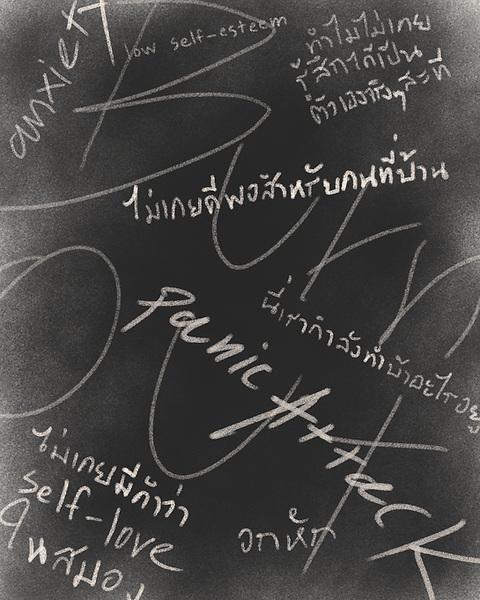 anxiety
low self-esteem
ทำไมไม่เคย
รู้สึกได้เป็น
ตัวเองจริงๆสะที
ไม่เคยดีพอสำหรับคนที่บ้าน
Burn
นี่เรากำลังทำบ้าอะไรอยู่
Panic Attack
Out
ไม่เคยมีคำว่า
self-love
ในสมอง
อกหัก